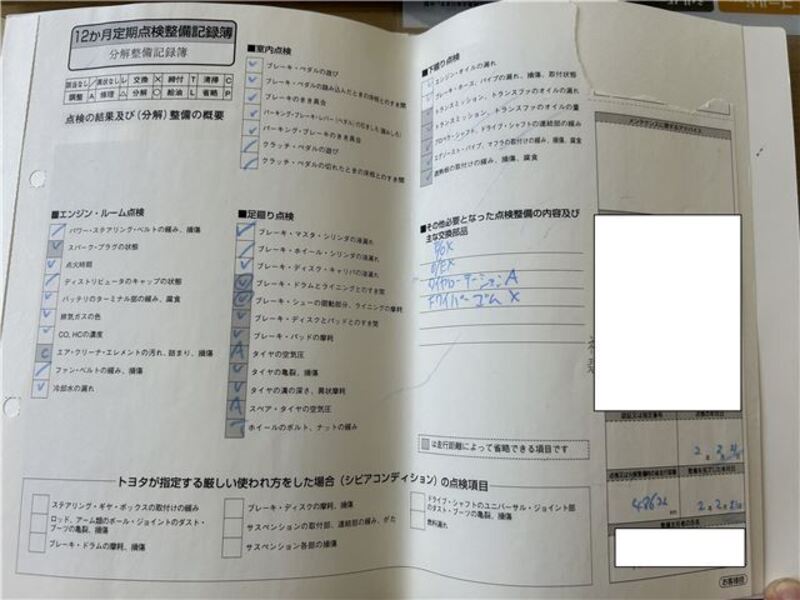 12か月定期点検整備記録簿
分解整備記録簿
該当なし／ 異状なし レ 交換 X 締付 T 清掃 C
調整 A 修理 △ 分解 ○ 給油 L 省略 P
点検の結果及び(分解)整備の概要
■エンジン・ルーム点検
パワー・ステアリング・ベルトの緩み、損傷
スパーク・プラグの状態
点火時期
ディストリビュータのキャップの状態
バッテリのターミナル部の緩み、腐食
排気ガスの色
CO,HCの濃度
エア・クリーナ・エレメントの汚れ、詰まり、損傷
ファン・ベルトの緩み、損傷
冷却水の漏れ
■室内点検
ブレーキ・ペダルの遊び
ブレーキ・ペダルの踏み込んだときの床板とのすき間
ブレーキのきき具合
パーキング・ブレーキ・レバー(ペダル)の引きしろ(踏みしろ)
パーキング・ブレーキのきき具合
クラッチ・ペダルの遊び
クラッチ・ペダルの切れたときの床板とのすき間
■足廻り点検
ブレーキ・マスタ・シリンダの液漏れ
ブレーキ・ホイール・シリンダの液漏れ
ブレーキ・ディスク・キャリパの液漏れ
ブレーキ・ドラムとライニングとのすき間
ブレーキ・シューの摺動部分、ライニングの摩耗
ブレーキ・ディスクとパッドとのすき間
ブレーキ・パッドの摩耗
A タイヤの空気圧
タイヤの亀裂、損傷
タイヤの溝の深さ、異状摩耗
A スペア・タイヤの空気圧
ホイールのボルト、ナットの緩み
■下廻り点検
エンジン・オイルの漏れ
ブレーキ・ホース、パイプの漏れ、損傷、取付状態
トランスミッション、トランスファのオイルの漏れ
トランスミッション、トランスファのオイルの量
プロペラ・シャフト、ドライブ・シャフトの連結部の緩み
エグゾースト・パイプ、マフラの取付けの緩み、損傷、腐食
遮熱板の取付けの緩み、損傷、腐食
■その他必要となった点検整備の内容及び
主な交換部品
タイヤローテーション A
ワイパーゴム X
は走行距離によって省略できる項目です
メンテナンスに関するアドバイス
トヨタが指定する厳しい使われ方をした場合(シビアコンディション)の点検項目
ステアリング・ギヤ・ボックスの取付けの緩み
ロッド、アーム類のボール・ジョイントのダスト・
ブーツの亀裂、損傷
ブレーキ・ドラムの摩耗、損傷
ブレーキ・ディスクの摩耗、損傷
サスペンションの取付部、連結部の緩み、がた
サスペンション各部の損傷
ドライブ・シャフトのユニバーサル・ジョイント部
のダスト・ブーツの亀裂、損傷
燃料漏れ
お客様控